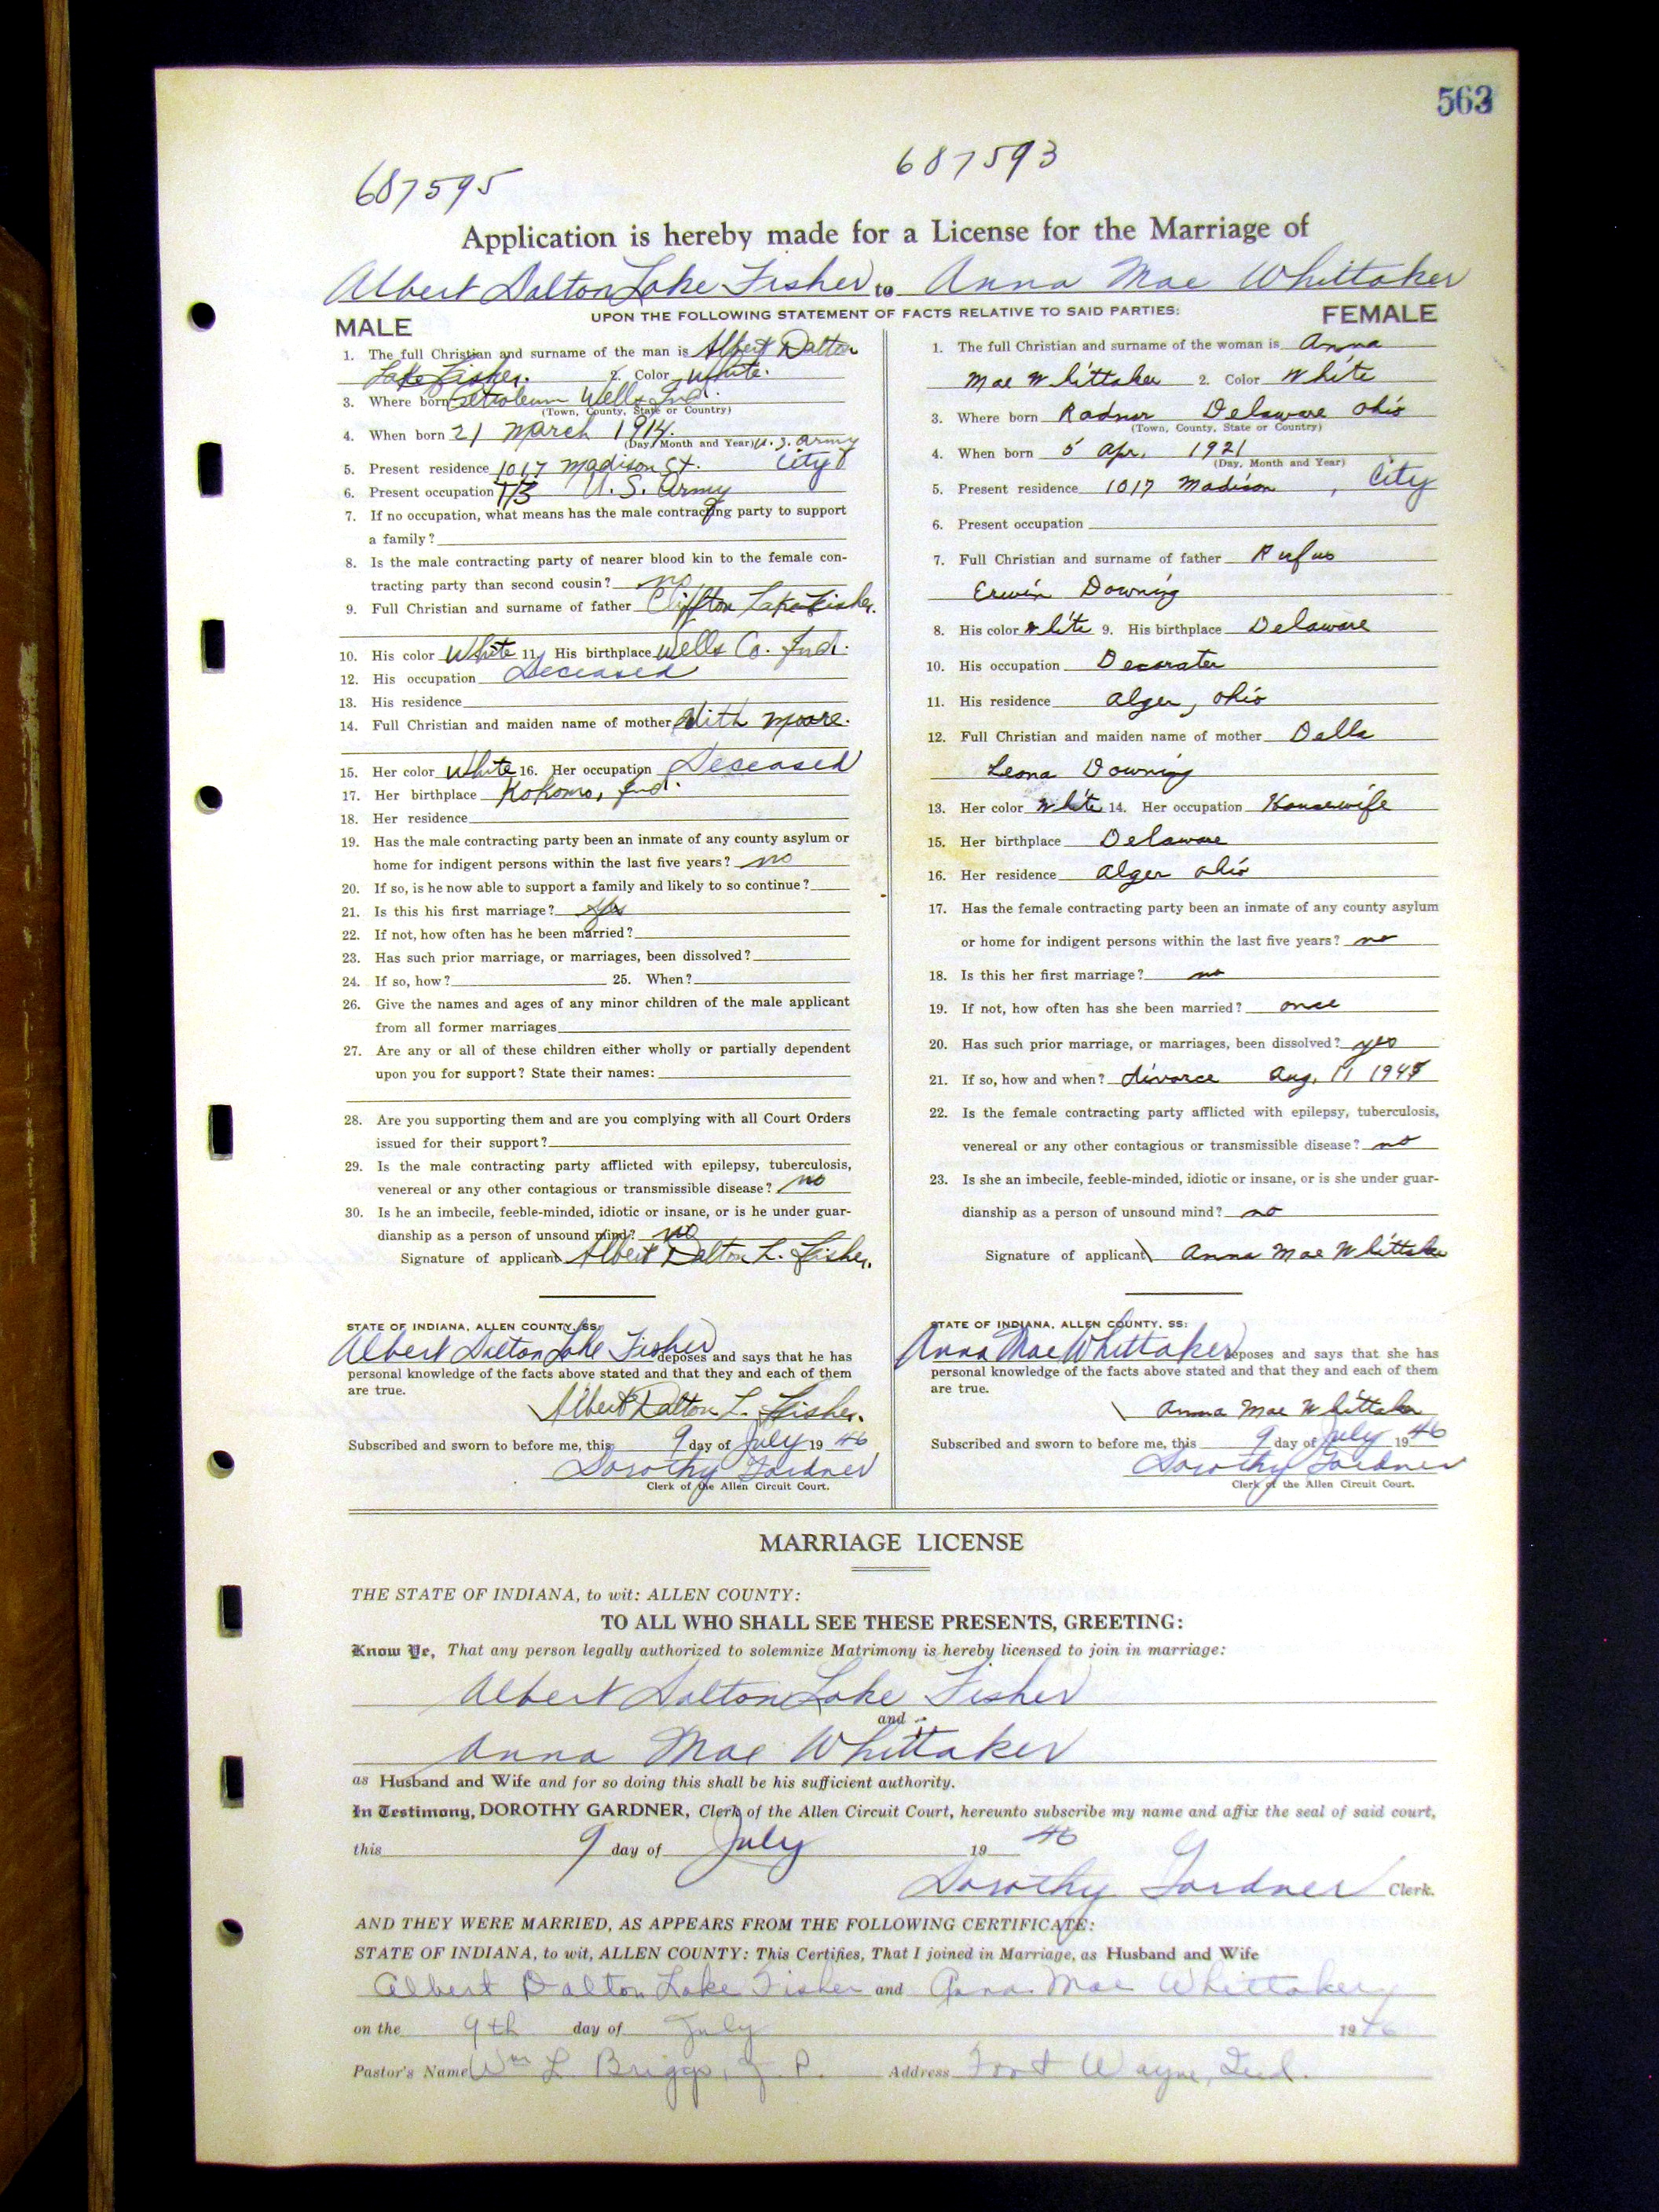 563
687593
687595
Application is hereby made for a License for the Marriage of
Albert Dalton Lake Fisher to Anna Mae Whittaker
UPON THE FOLLOWING STATEMENT OF FACTS RELATIVE TO SAID PARTIES:
MALE
1. The full Christian and surname of the man is Albert Dalton
Lake Fisher. 2. Color White.
3. Where born Petroleum Wells Ind.
(Town, County, State or Country)
4. When born 21 March 1914.
(Day, Month and Year) U. S. Army
5. Present residence 1017 Madison St. City
6. Present occupation T/3 U. S. Army
7. If no occupation, what means has the male contracting party to support
a family?
8. Is the male contracting party of nearer blood kin to the female con-
tracting party than second cousin? no
9. Full Christian and surname of father Cliffton Lake Fisher.
10. His color White 11. His birthplace Wells Co. Ind.
12. His occupation Deceased
13. His residence
14. Full Christian and maiden name of mother Edith Moore.
15. Her color White 16. Her occupation Deceased
17. Her birthplace Kokomo, Ind.
18. Her residence
19. Has the male contracting party been an inmate of any county asylum or
home for indigent persons within the last five years? no
20. If so, is he now able to support a family and likely to so continue?
21. Is this his first marriage? Yes
22. If not, how often has he been married?
23. Has such prior marriage, or marriages, been dissolved?
24. If so, how? 25. When?
26. Give the names and ages of any minor children of the male applicant
from all former marriages
27. Are any or all of these children either wholly or partially dependent
upon you for support? State their names:
28. Are you supporting them and are you complying with all Court Orders
issued for their support?
29. Is the male contracting party afflicted with epilepsy, tuberculosis,
venereal or any other contagious or transmissible disease? no
30. Is he an imbecile, feeble-minded, idiotic or insane, or is he under guar-
dianship as a person of unsound mind? no
Signature of applicant Albert Dalton L. Fisher.
STATE OF INDIANA, ALLEN COUNTY, SS:
Albert Dalton Lake Fisher deposes and says that he has
personal knowledge of the facts above stated and that they and each of them
are true.
Albert Dalton L. Fisher.
Subscribed and sworn to before me, this 9 day of July 19 46
Dorothy Gardner
Clerk of the Allen Circuit Court.
FEMALE
1. The full Christian and surname of the woman is Anna
Mae Whittaker 2. Color White
3. Where born Radnor Delaware Ohio
(Town, County, State or Country)
4. When born 5 Apr. 1921
(Day, Month and Year)
5. Present residence 1017 Madison, City
6. Present occupation
7. Full Christian and surname of father Rufus
Erwin Downing
8. His color White 9. His birthplace Delaware
10. His occupation Decorater
11. His residence Alger, Ohio
12. Full Christian and maiden name of mother Della
Leona Downing
13. Her color White 14. Her occupation Housewife
15. Her birthplace Delaware
16. Her residence Alger Ohio
17. Has the female contracting party been an inmate of any county asylum
or home for indigent persons within the last five years? no
18. Is this her first marriage? no
19. If not, how often has she been married? once
20. Has such prior marriage, or marriages, been dissolved? yes
21. If so, how and when? divorce Aug. 11
22. Is the female contracting party afflicted with epilepsy, tuberculosis,
venereal or any other contagious or transmissible disease? no
23. Is she an imbecile, feeble-minded, idiotic or insane, or is she under guar-
dianship as a person of unsound mind? no
Signature of applicant Anna Mae Whittaker
STATE OF INDIANA, ALLEN COUNTY, SS:
Anna Mae Whittaker deposes and says that she has
personal knowledge of the facts above stated and that they and each of them
are true.
Anna Mae Whittaker
Subscribed and sworn to before me, this 9 day of July 19 46
Dorothy Gardner
Clerk of the Allen Circuit Court.
MARRIAGE LICENSE
THE STATE OF INDIANA, to wit: ALLEN COUNTY:
TO ALL WHO SHALL SEE THESE PRESENTS, GREETING:
Know Ye, That any person legally authorized to solemnize Matrimony is hereby licensed to join in marriage:
Albert Dalton Lake Fisher
and
Anna Mae Whittaker
as Husband and Wife and for so doing this shall be his sufficient authority.
In Testimony, DOROTHY GARDNER, Clerk of the Allen Circuit Court, hereunto subscribe my name and affix the seal of said court,
this 9 day of July 19 46
Dorothy Gardner Clerk.
AND THEY WERE MARRIED, AS APPEARS FROM THE FOLLOWING CERTIFICATE:
STATE OF INDIANA, to wit, ALLEN COUNTY: This Certifies, That I joined in Marriage, as Husband and Wife
Albert Dalton Lake Fisher and Anna Mae Whittaker
on the 9th day of July 1946
Pastor's Name Wm L. Briggs, J. P. Address Fort Wayne, Ind.